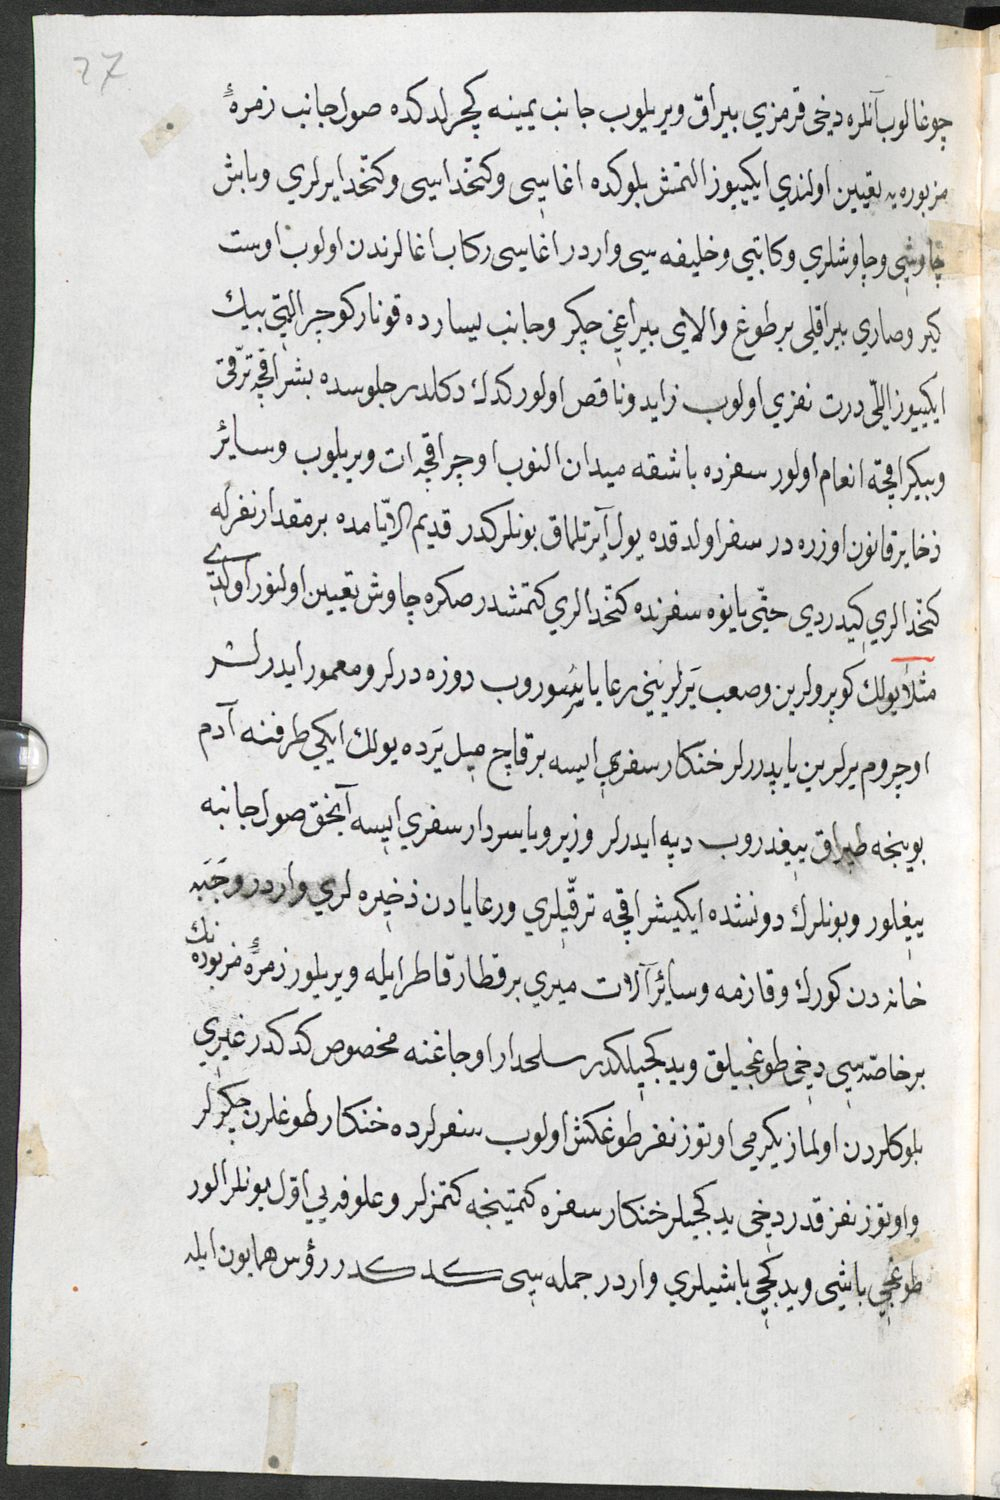 27
چوغالوب آنلره دخی قرمزي بیراق ویریلوب جانب یمینه کچرلدکده صول جانب زمرۀ
مزبوره یه تعیین اولندي ایکییوز التمش بلوکده اغاسی وکتخداسی وکتخدا یرلري وباش
چاوشی وچاوشلري وکاتبی وخلیفه سی واردر اغاسی رکاب اغالرندن اولوب اوست
کیر وصاري بیراقلی برطوغ والای بیراغی چکر وجانب یسارده قونار کوچر التی بیك
ایکییوز اللی درت نفري اولوب زاید وناقص اولور کدك دکلدر جلوسده بشر اقچه ترقی
وبیکر اقچه انعام اولور سفرده باشقه میدان النوب اوچر اقچه ات ویریلوب وسائر
ذخایر قانون اوزره در سفر اولدقده یول آیرتلماق بونلرکدر قدیم الایامده برمقدار نفرله
کتخدالري کیدردي حتی یانوه سفرنده کتخدالري کتمشدر صکره چاوش تعیین اولنور اولدي
مثلا یولك کوپرولرین وصعب یرلرینی رعایایه سوروب دوزه درلر ومعمور ایدرلر
اوچروم یرلرین یاپدررلر خنکار سفري ایسه برقاچ میل یرده یولك ایکی طرفنه آدم
بوینجه طپراق ییغدروب دپه ایدرلر وزیر ویا سردار سفري ایسه آنجق صول جانبه
ییغلور وبونلرك دونشده ایکیشر اقچه ترقیلري ورعایادن ذخیره لري واردر وجبه
خانه دن کورك وقازمه وسائر آلات میري برقطار قاطر ایله ویریلور زمرۀ مزبوره نك
برخاصه سی دخی طوغجیلق ویدکجیلکدر سلحدار اوجاغنه مخصوص کدکدر غیري
بلوکلردن اولماز یکرمی اوتوز نفر طوغکش اولوب سفرلرده خنکار طوغلرن چکرلر
واوتوز نفر قدر دخی یدکجیلر خنکار سفره کتمینجه کتمزلر وعلوفه یی اول بونلر الور
طوغجی باشی ویدکجی باشیلري واردر جمله سی کدکدر رؤس همایون ایله